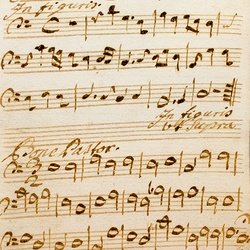 In figuris.
In figuris
ut Supra.
Bone Pastor.